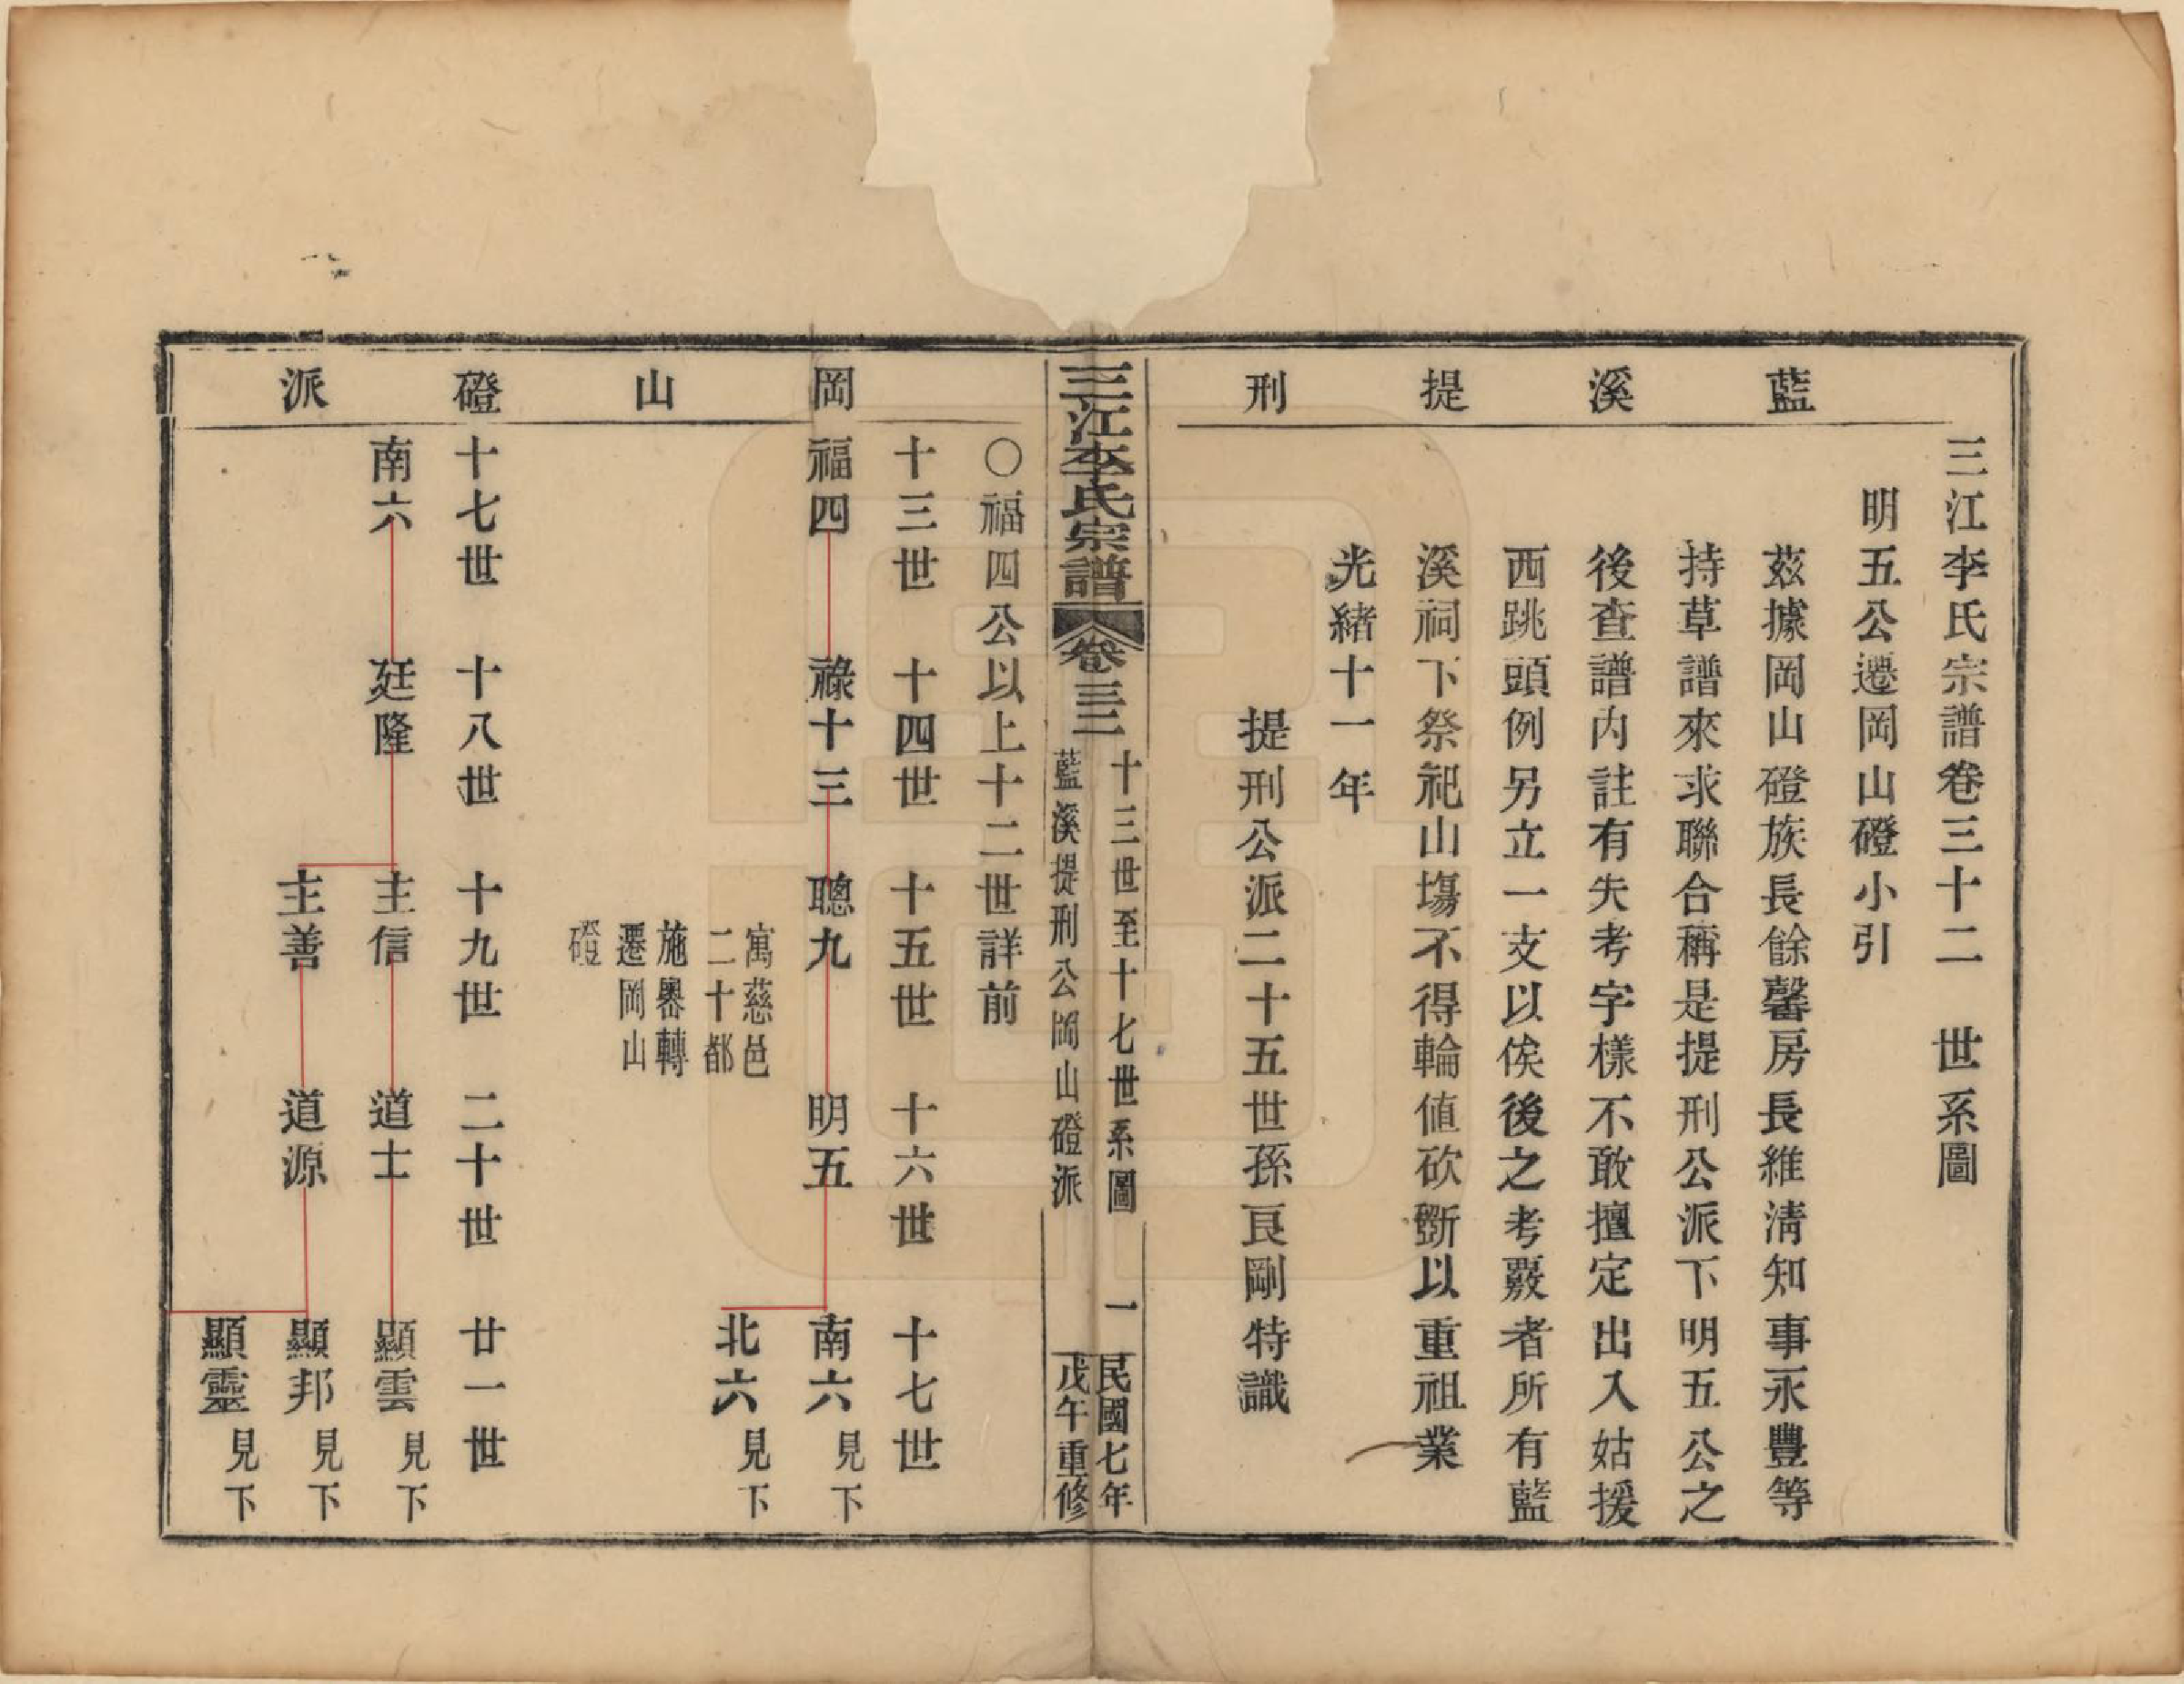 藍溪提刑
三江李氏宗譜卷三十二　世系圖
明五公遷岡山磴小引
茲據岡山磴族長餘馨房長維淸知事永豐等
持草譜來求聯合稱是提刑公派下明五公之
後查譜內註有失考字樣不敢擅定出入姑援
西跳頭例另立一支以俟後之考覈者所有藍
溪祠下祭祀山塲不得輪値砍斲以重祖業
光緖十一年
提刑公派二十五世孫良剛特識
三江李氏宗譜
卷三二
十三世至十七世系圖
藍溪提刑公岡山磴派
一
民國七年
戊午重修
岡山磴派
〇福四公以上十二世詳前
十三世　十四世　十五世　十六世　十七世
福四　祿十三　聰九　明五　南六見下
寓慈邑
二十都
施嶴轉
遷岡山
磴
北六見下
十七世　十八世　十九世　二十世　廿一世
南六　廷隆　主信　道士　顯雲見下
主善　道源　顯邦見下
顯靈見下